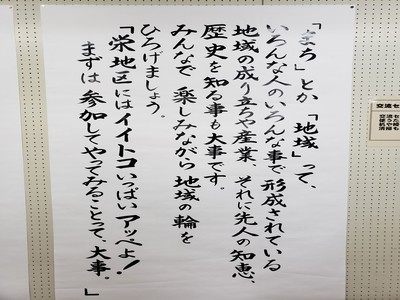 「まち」とか「地域」って、
いろんな人のいろんな事で形成されている
地域の成り立ちや産業、それに先人の知恵、
歴史を知る事も大事です。
みんなで楽しみながら地域の輪を
ひろげましょう。
「栄地区にはイイトコいっぱいアッペよ!
まずは参加してやってみることって、大事。」
交流セ